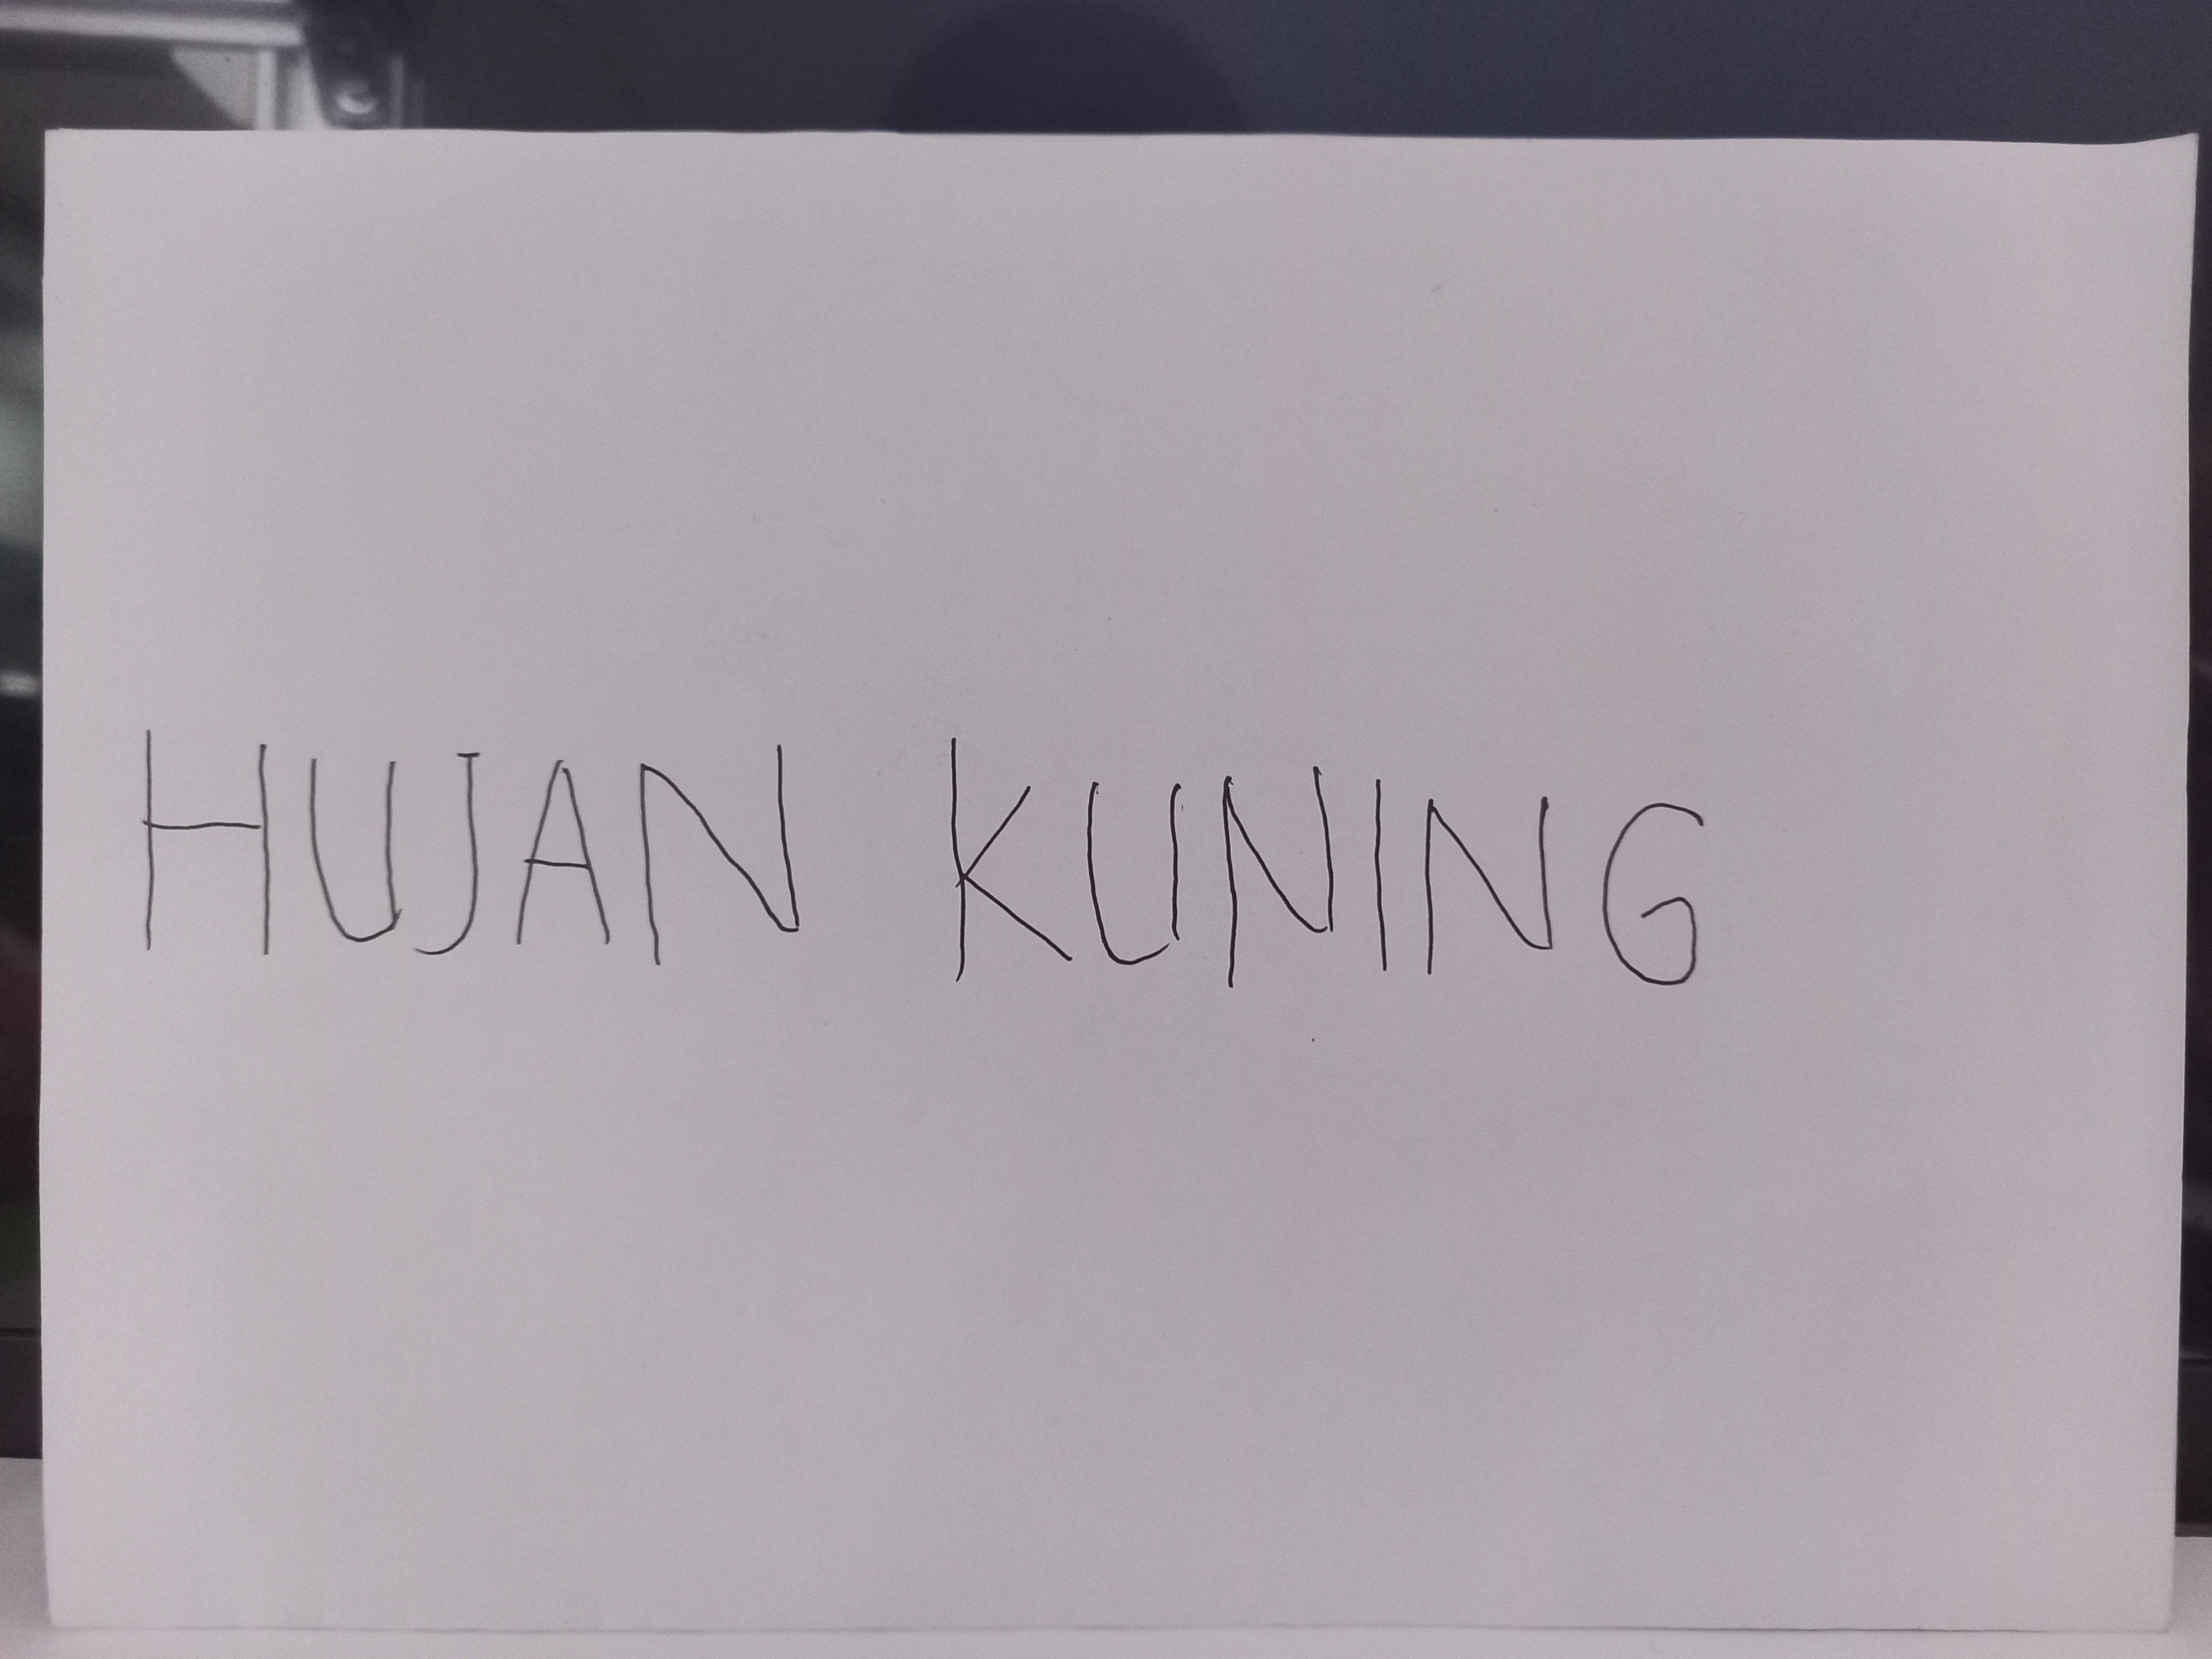 HUJAN KUNING